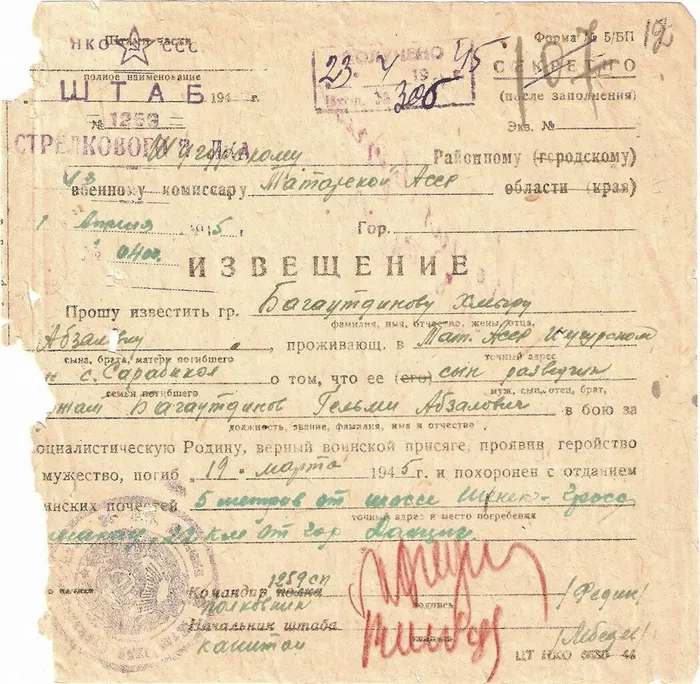 НКО СССР.
полное наименование
ШТАБ 194 г.
№ 1259
СТРЕЛКОВОГО П-КА
ПОЛУЧЕНО
23. 19 45
Вход. № 306
Форма № 5/БП
12
107
СЕКРЕТНО
(после заполнения)
Экз. №
Районному (городскому)
военному комиссару Татарской Асср области (края)
1 апреля 1945 г. Гор.
№
ИЗВЕЩЕНИЕ
Прошу известить гр. Багаутдинову
фамилия, имя, отчество, жены, отца,
, проживающ. в Тат. Асср
сына, брата, матери погибшего точный адрес
с. Сарабикол о том, что ее (его) сын
семьи погибшего муж, сын, отец, брат,
Багаутдинов Гельми Абзалович в бою за
должность, звание, фамилия, имя и отчество
социалистическую Родину, верный воинской присяге, проявив геройство
мужество, погиб 19 марта 1945 г. и похоронен с отданием
инских почестей 5 метров от шоссе
точный адрес и место погребения
20 км от гор Данциг
Командир полка 1259 сп
полковник подпись /Федин/
Начальник штаба
капитан /Лебедев/
ЦТ НКО